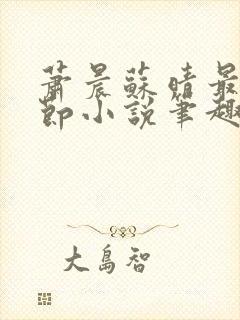 萧晨苏晴最
節小說筆趣
大島智